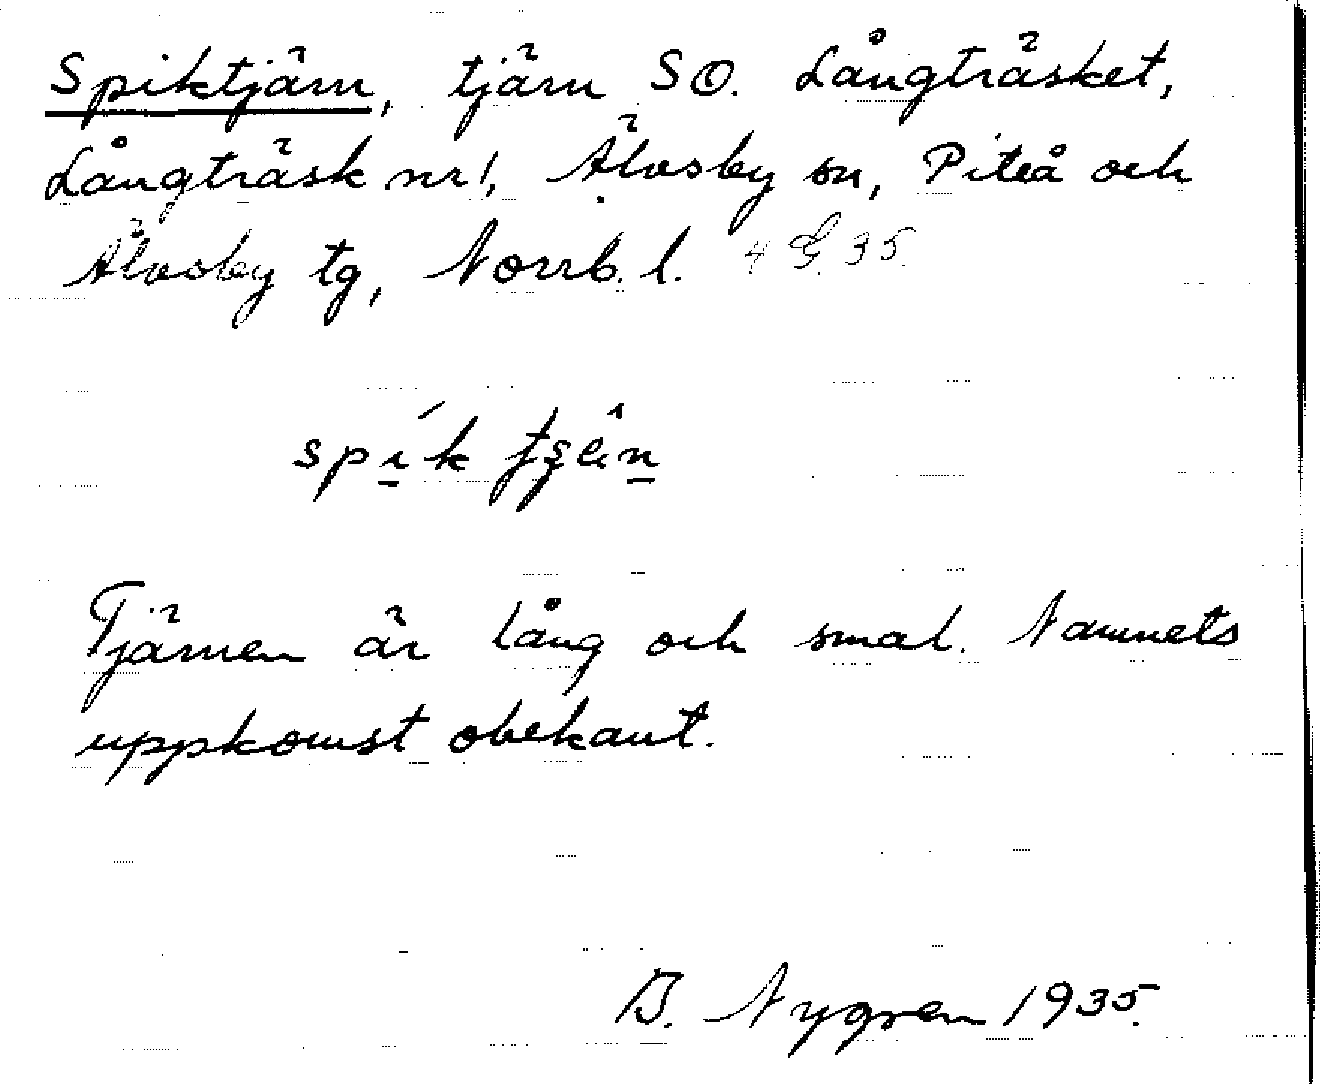 Spiktjärn, tjärn SO. Långträsket,
Långträsk nr 1, Älvsby sn, Piteå och
Älvsby tg, Norrb. l. 4 G. 35.
Tjärnen är lång och smal. Namnets
uppkomst obekant.
B. Nygren 1935.